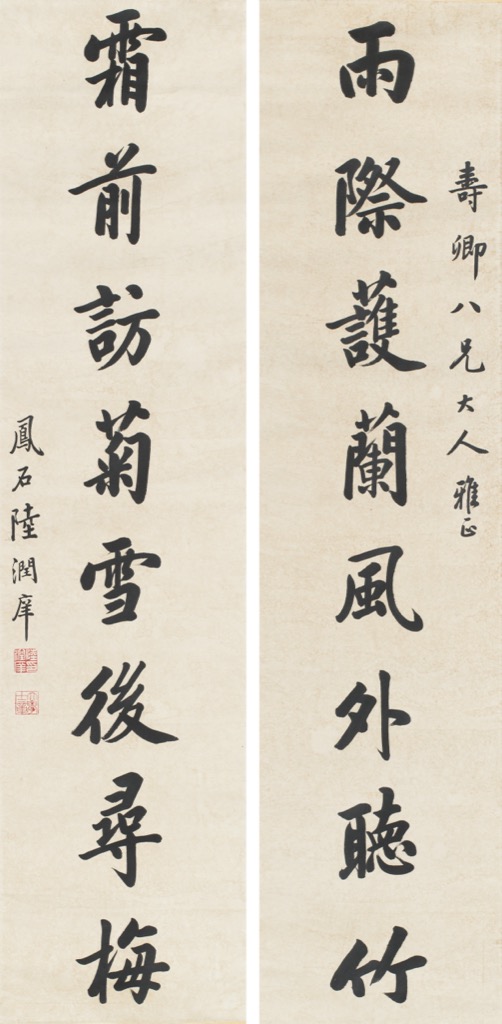 壽卿八兄大人雅正
雨際護蘭風外聽竹
霜前訪菊雪後尋梅
鳳石陸潤庠